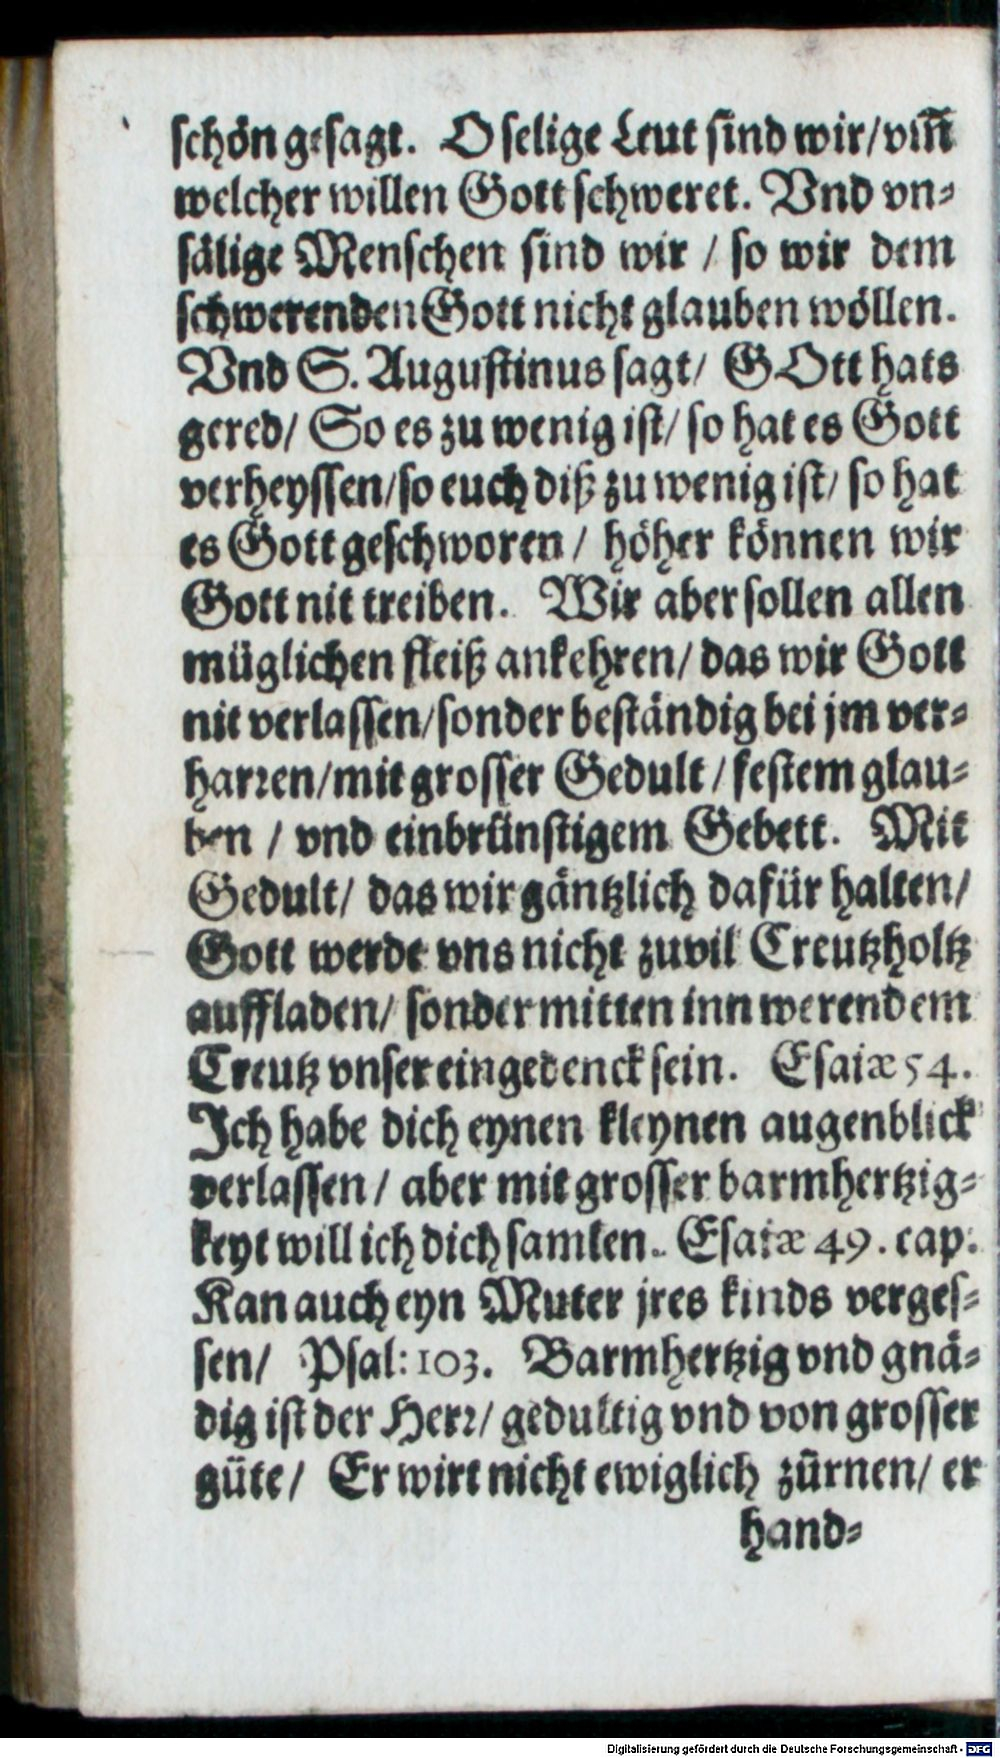 schön gesagt. O selige Leut sind wir/ vm̃
welcher willen Gott schweret. Vnd vn-
sälige Menschen sind wir / so wir dem
schwerenden Gott nicht glauben wöllen.
Vnd S. Augustinus sagt/ GOtt hats
gered/ So es zu wenig ist/ so hat es Gott
verheyssen/ so euch diß zu wenig ist/ so hat
es Gott geschworen / höher können wir
Gott nit treiben. Wir aber sollen allen
müglichen fleiß ankehren/ das wir Gott
nit verlassen/ sonder beständig bei jm ver-
harren/ mit grosser Gedult / festem glau-
ben / vnd einbrünstigem Gebett. Mit
Gedult/ das wir gäntzlich dafür halten/
Gott werde vns nicht zuvil Creutzholtz
auffladen/ sonder mitten inn werendem
Creutz vnser eingedenck sein. Esaiæ 54.
Ich habe dich eynen kleynen augenblick
verlassen / aber mit grosser barmhertzig-
keyt will ich dich samlen. Esaiæ 49. cap.
Kan auch eyn Muter jres kinds verges-
sen/ Psal: 103. Barmhertzig vnd gnä-
dig ist der Herr/ gedultig vnd von grosser
güte/ Er wirt nicht ewiglich zürnen/ er
hand-
Digitalisierung gefördert durch die Deutsche Forschungsgemeinschaft - DFG